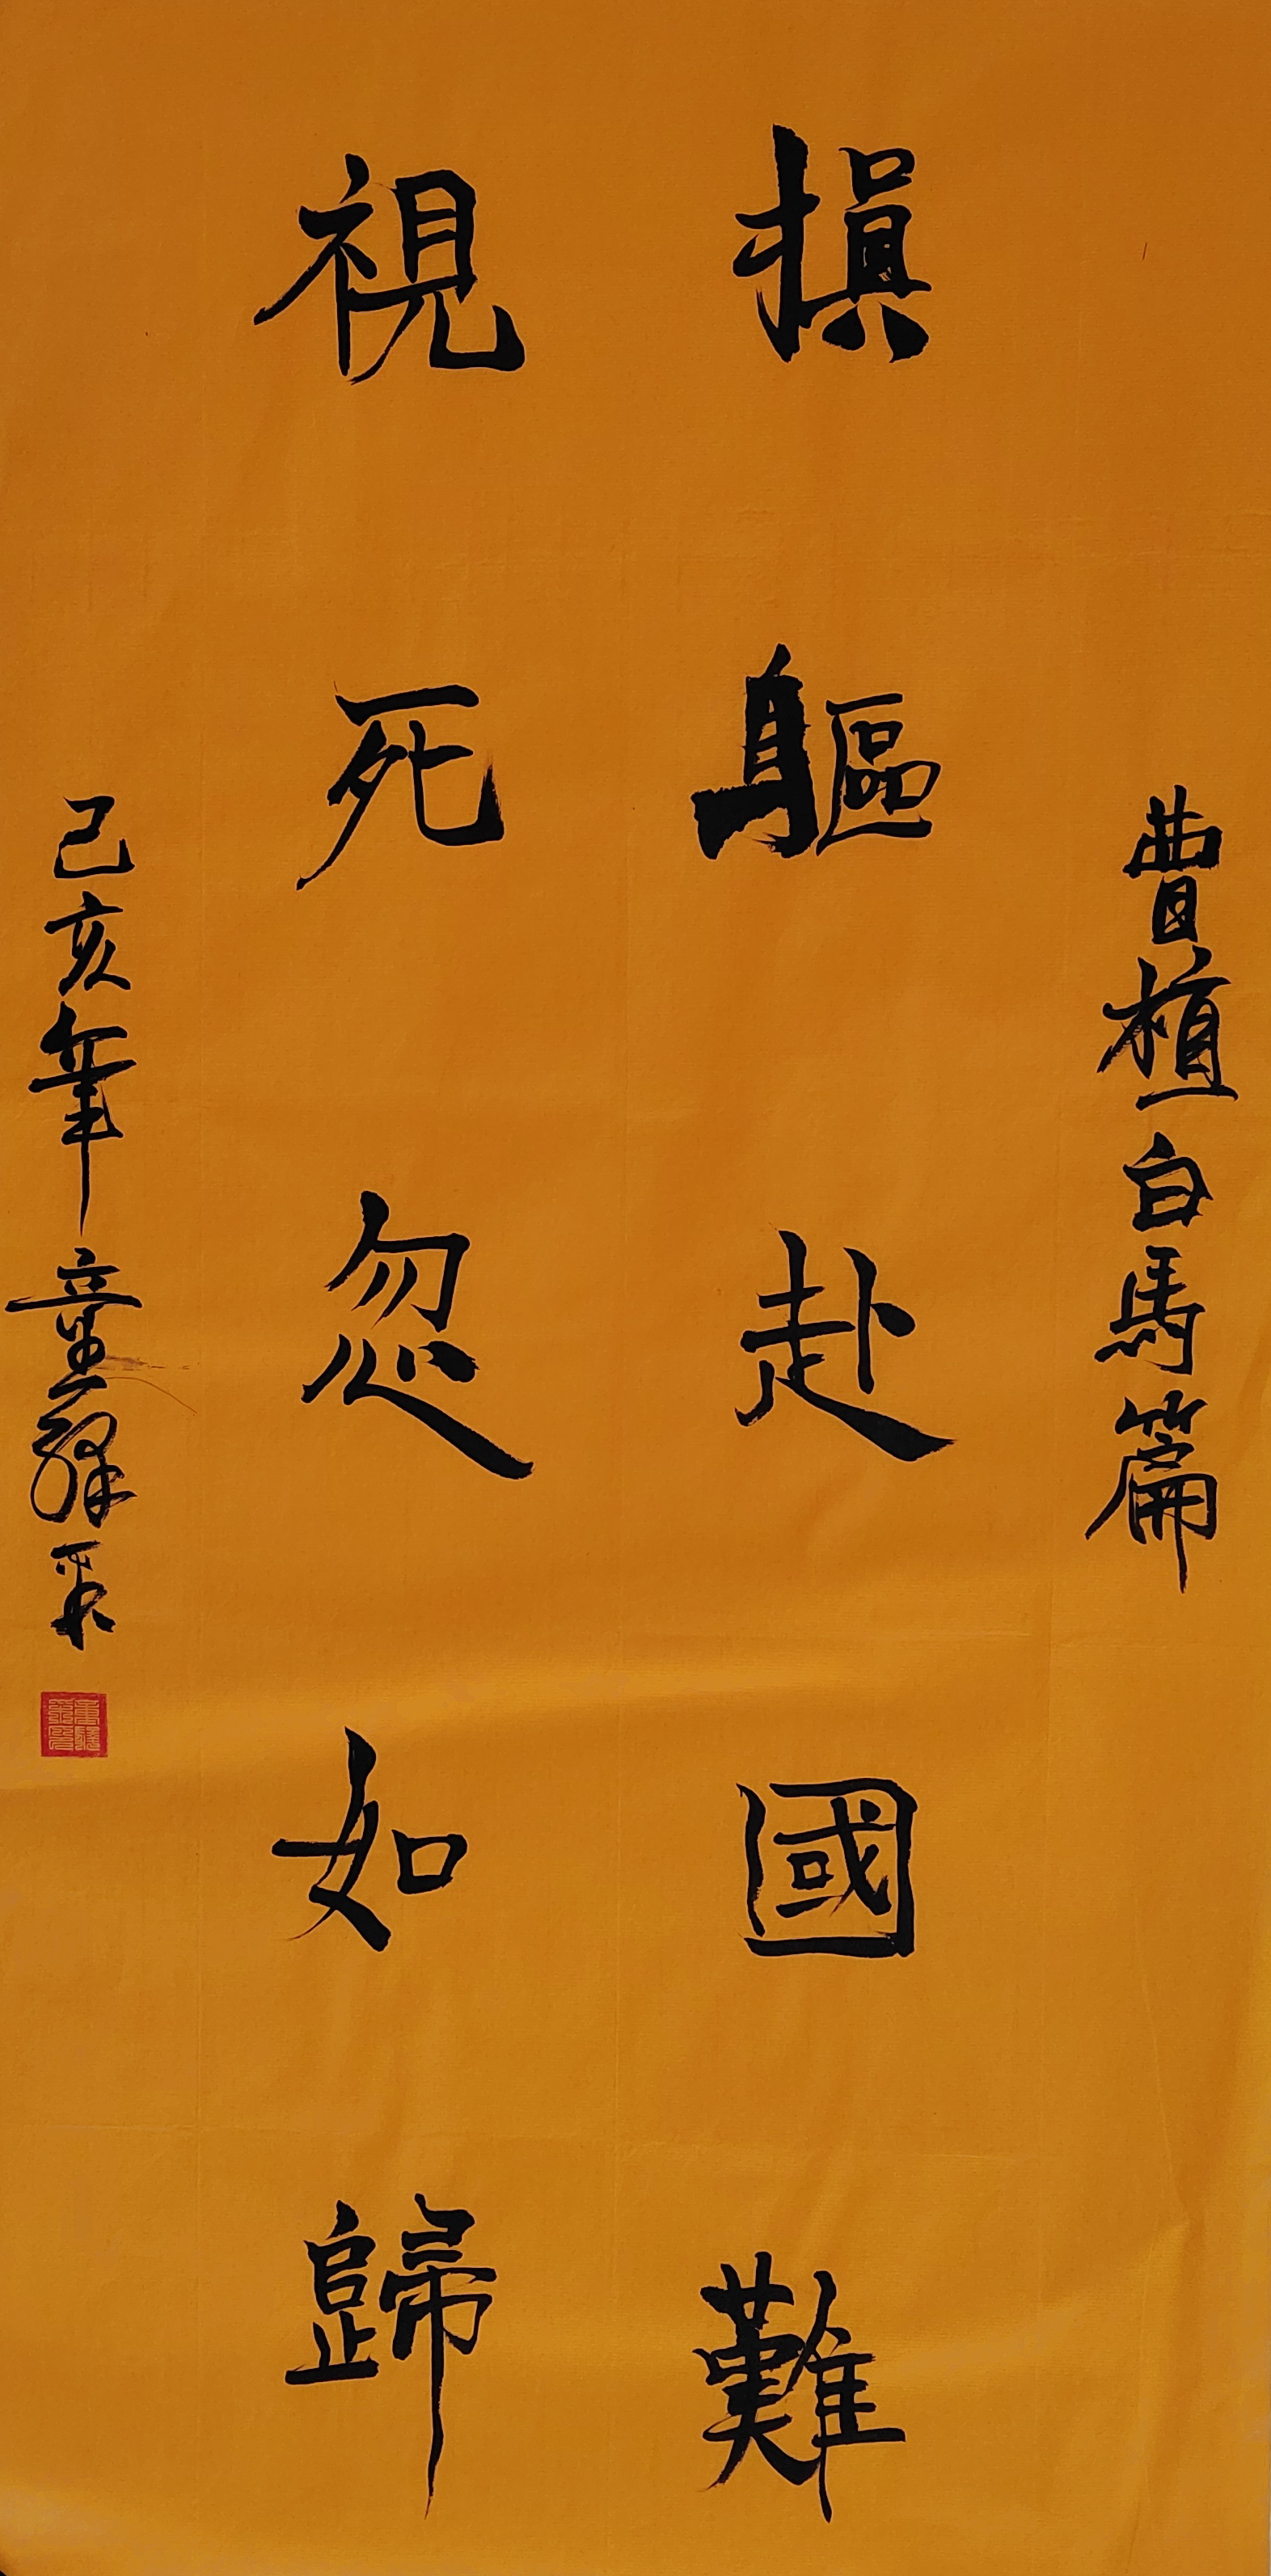 曹植白馬篇
損軀赴國難
視死忽如歸
己亥年童